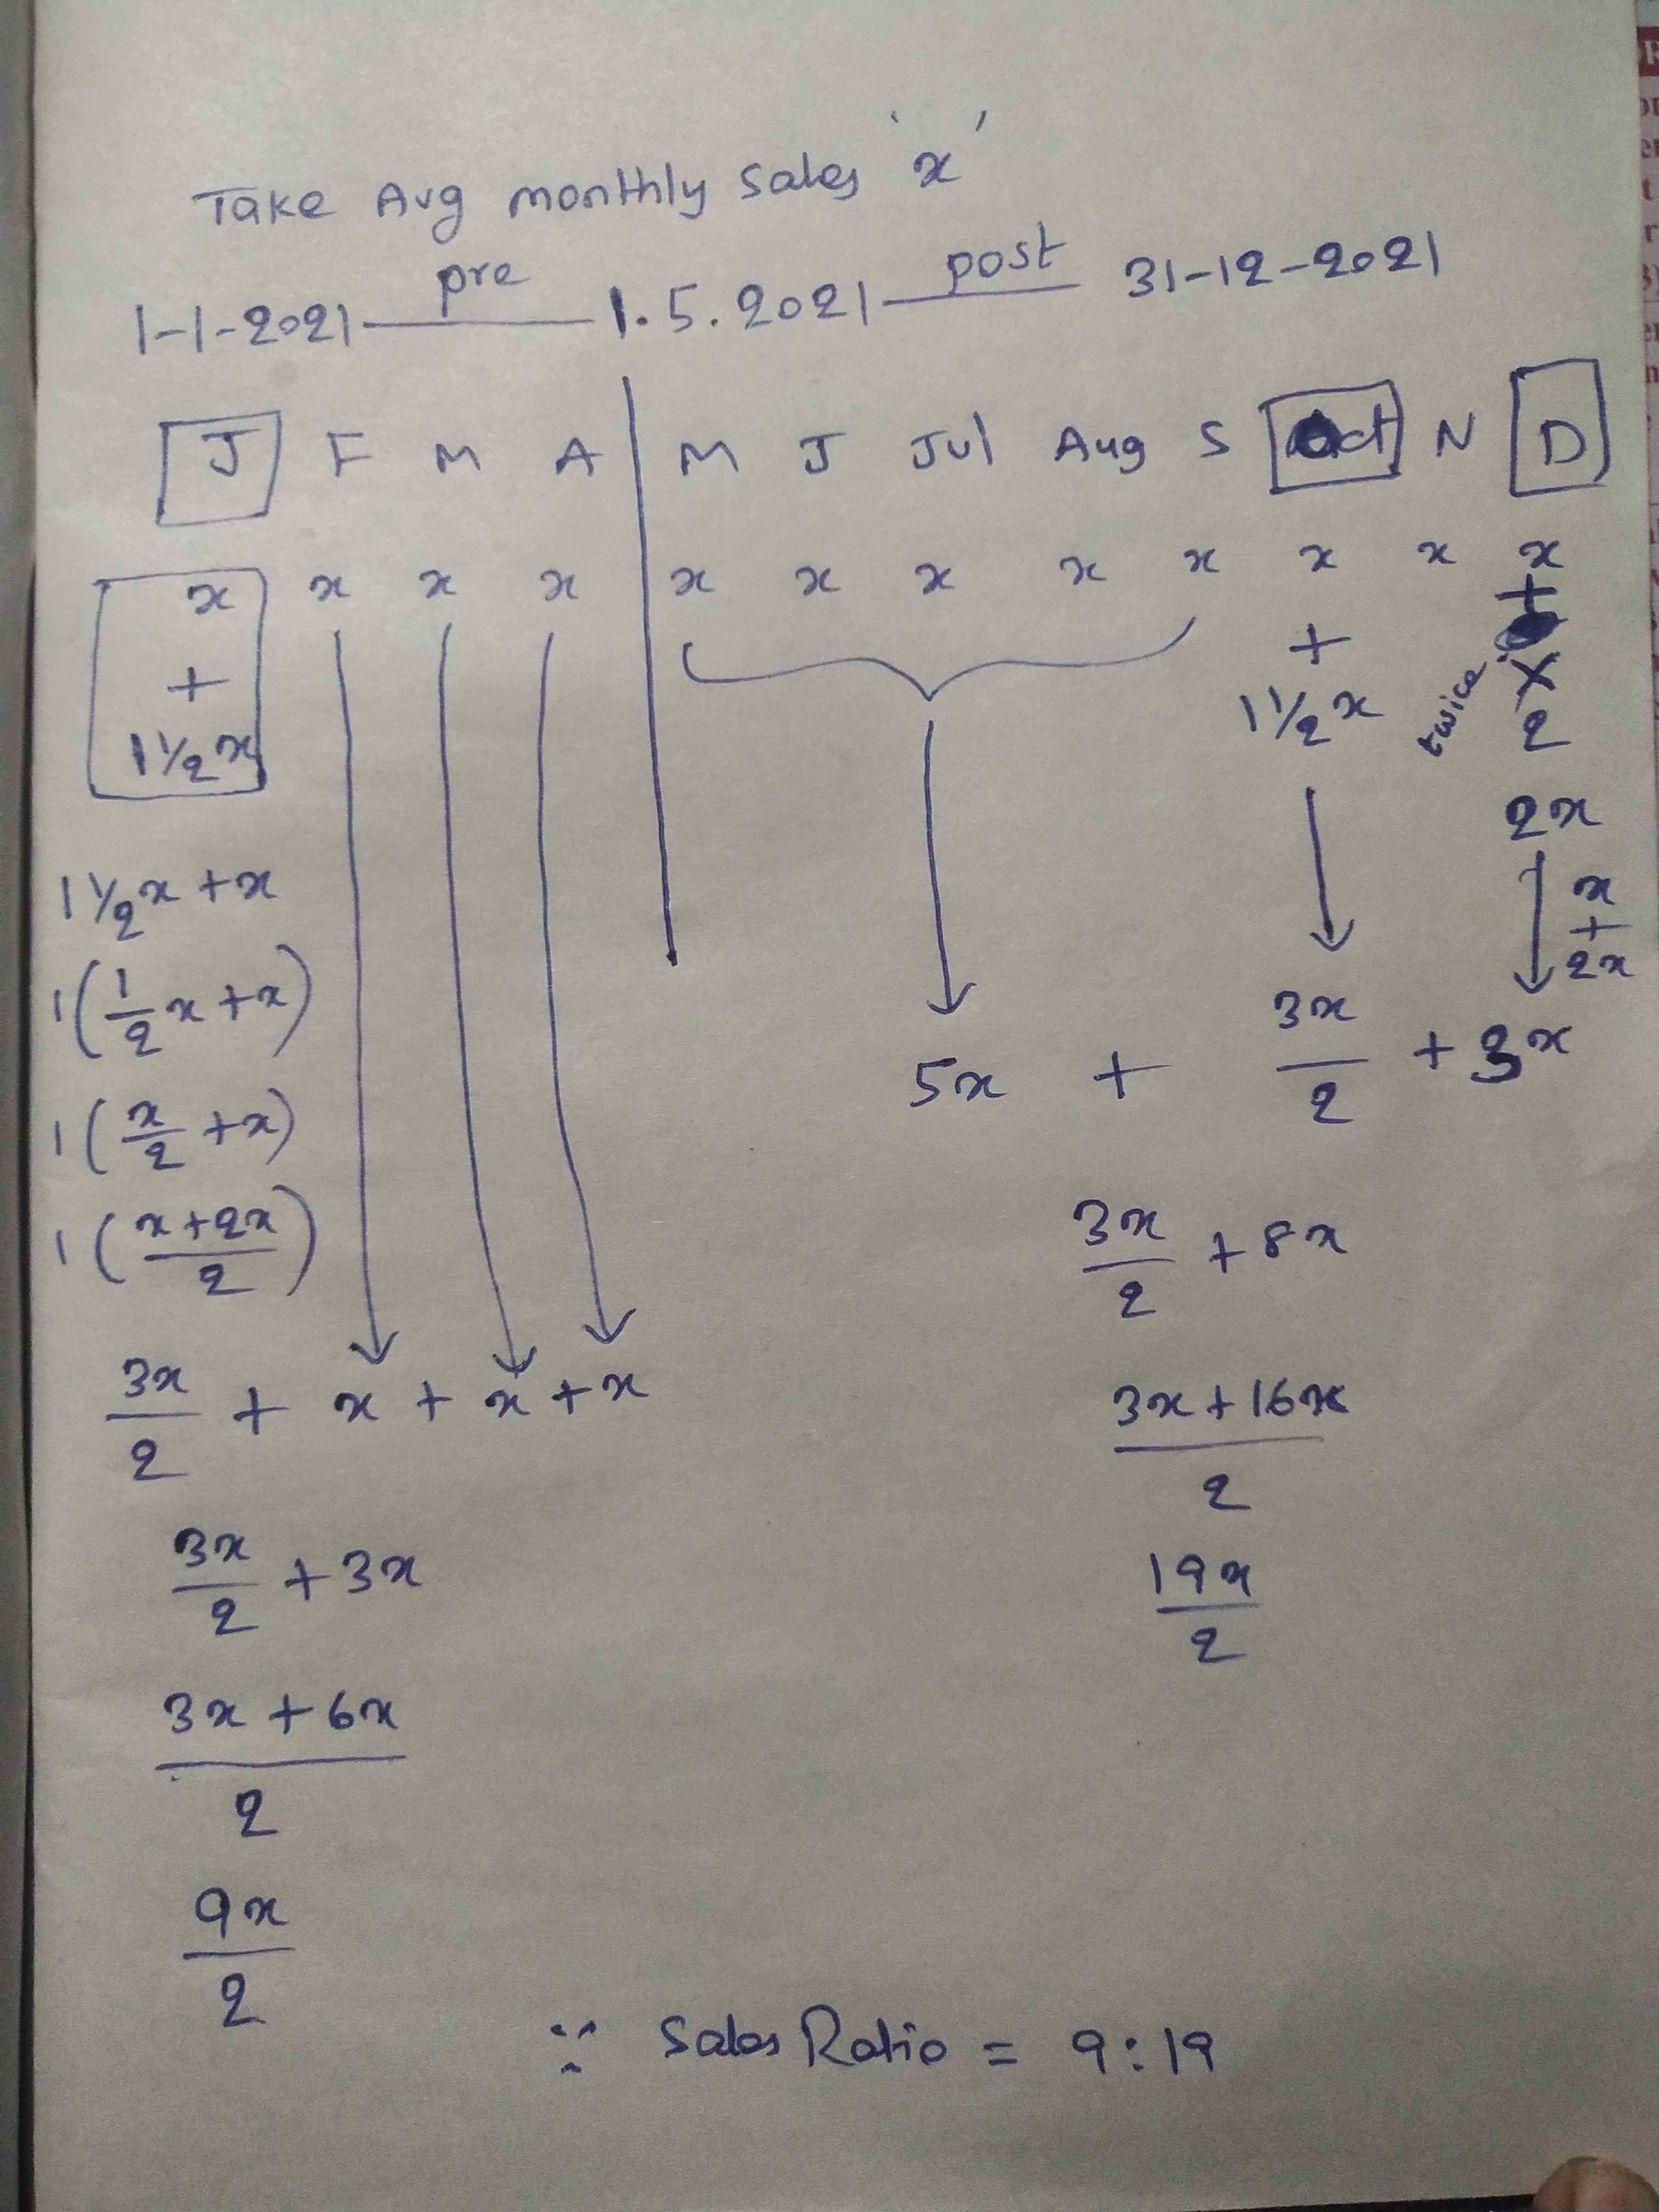 Take Avg monthly Sales 'x'
1-1-2021 pre 1.5.2021 post 31-12-2021
J F M A M J Jul Aug S Oct N D
x x x x x x x x x x x x
+ + +
1 1/2 x 1 1/2 x twice x 2
2x
1 1/2 x + x x + 2x
1 (1/2 x + x)
5x + 3x/2 + 3x
1 (x/2 + x)
1 (x+2x/2) 3x/2 + 8x
3x/2 + x + x + x 3x+16x/2
3x/2 + 3x 19x/2
3x + 6x/2
9x/2
∵ Sales Ratio = 9:19